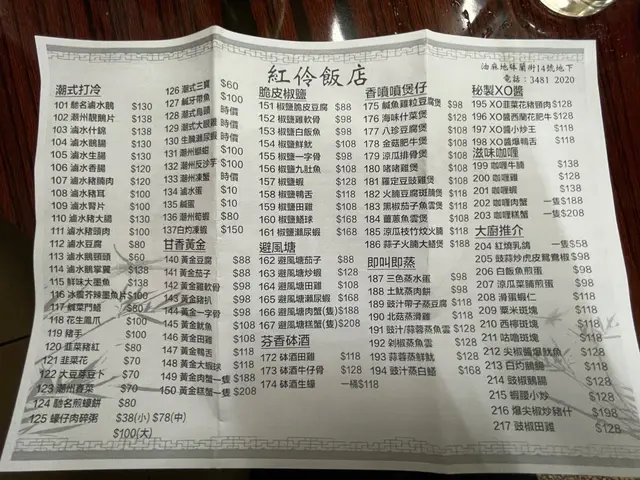 紅伶飯店
油麻地砵蘭街14號地下
電話：3481 2020
潮式打冷
101 馳名滷水鵝 $130
102 潮州靚鵝片 $138
103 滷水什錦 $138
104 滷水鵝腸 $130
105 滷水生腸 $130
106 滷水香腸 $120
107 滷水豬腩肉 $120
108 滷水豬耳 $100
109 滷水腎片 $100
110 滷水豬大腸 $130
111 滷水豬頭肉 $100
112 滷水豆腐 $80
113 滷水鵝頭頸 $60
114 滷水鵝掌翼 $138
115 鮮味大墨魚 $138
116 冰震芥辣墨魚片 $100
117 鹹菜門鱔 $80
118 花生鳳爪 $100
119 豬手 $100
120 韭菜豬紅 $80
121 韭菜花 $70
122 大豆芽豆卜 $70
123 潮州春菜 $70
124 馳名煎蠔餅 $80
125 蠔仔肉碎粥 $38(小) $78(中)
$100(大)
126 潮式三寶 $60
127 鹹牙帶魚 $100
128 潮式烏頭 時價
129 潮式大眼雞 時價
130 生腌瀨尿蝦 時價
131 潮州蝴蜞 $100
132 潮州反沙芋 $100
133 潮州凍蟹 時價
134 滷水蛋 $10
135 鹹蛋 $10
136 潮州荀蝦 $80
137白灼凍蝦 $150
甘香黃金
140 黃金豆腐 $88
141 黃金茄子 $88
142 黃金雞軟骨 $98
143 黃金豬扒 $98
144 黃金一字骨 $98
145 黃金魷魚 $108
146 黃金田雞 $108
147 黃金鴨舌 $118
148 黃金大蝦球 $118
149 黃金肉蟹一隻 $188
150 黃金糕蟹一隻 $208
脆皮椒鹽
151 椒鹽脆皮豆腐 $88
152 椒鹽雞軟骨 $98
153 椒鹽白飯魚 $98
154 椒鹽鮮魷 $108
155 椒鹽一字骨 $98
156 椒鹽九肚魚 $108
157 椒鹽蝦 $128
158 椒鹽鴨舌 $118
159 椒鹽田雞 $108
160 椒鹽鱔球 $168
161 椒鹽瀨尿蝦 $168
避風塘
162 避風塘茄子 $88
163 避風塘炒蝦 $128
164 避風塘田雞 $108
165 避風塘瀨尿蝦 $168
166 避風塘肉蟹(隻) $188
167 避風塘糕蟹(隻) $208
芬香砵酒
172 砵酒田雞 $118
173 砵酒牛仔骨 $128
174 砵酒生蠔 一桶$118
香噴噴煲仔
175 鹹魚雞粒豆腐煲 $98
176 海味什菜煲 $128
177 八珍豆腐煲 $108
178 金菇肥牛煲 $108
179 涼瓜排骨煲 $108
180 啫啫雞煲 $108
181 羅定豆豉雞煲 $108
182 火腩豆腐斑腩煲 $118
183 黑椒茄子魚雲煲 $118
184 薑蔥魚雲煲 $108
185 涼瓜枝竹炆火腩 $118
186 蒜子火腩大鱔煲 $188
即叫即蒸
187 三色蒸水蛋 $98
188 土魷蒸肉餅 $98
189 豉汁帶子蒸豆腐 $118
190 北菇蒸滑雞 $118
191 豉汁/蒜蓉蒸魚雲 $128
192 剁椒蒸魚雲 $128
193 蒜蓉蒸鮮魷 $128
194 豉汁蒸白鱔 $168
秘製XO醬
195 XO韭菜花豬頸肉 $128
196 XO醬西蘭花肥牛 $128
197 XO醬小炒王 $118
198 XO醬爆鴨舌 $118
滋味咖喱
199 咖喱牛腩 $138
200 咖喱雞 $128
201 咖喱蝦 $138
202 咖喱肉蟹 一隻$188
203 咖喱糕蟹 一隻$208
大廚推介
204 紅燒乳鴿 一隻$58
205 豉蒜炒虎皮鴛鴦椒 $98
206 白飯魚煎蛋 $98
207 涼瓜菜脯煎蛋 $98
208 滑蛋蝦仁 $118
209 粟米斑塊 $118
210 西檸斑塊 $118
211 咕嚕斑塊 $118
212 尖椒醬爆魷魚 $128
213 白灼鵝腸 $118
214 豉椒鵝腸 $128
215 蝦腰小炒 $128
216 爆尖椒炒豬什 $198
217 豉椒田雞 $128